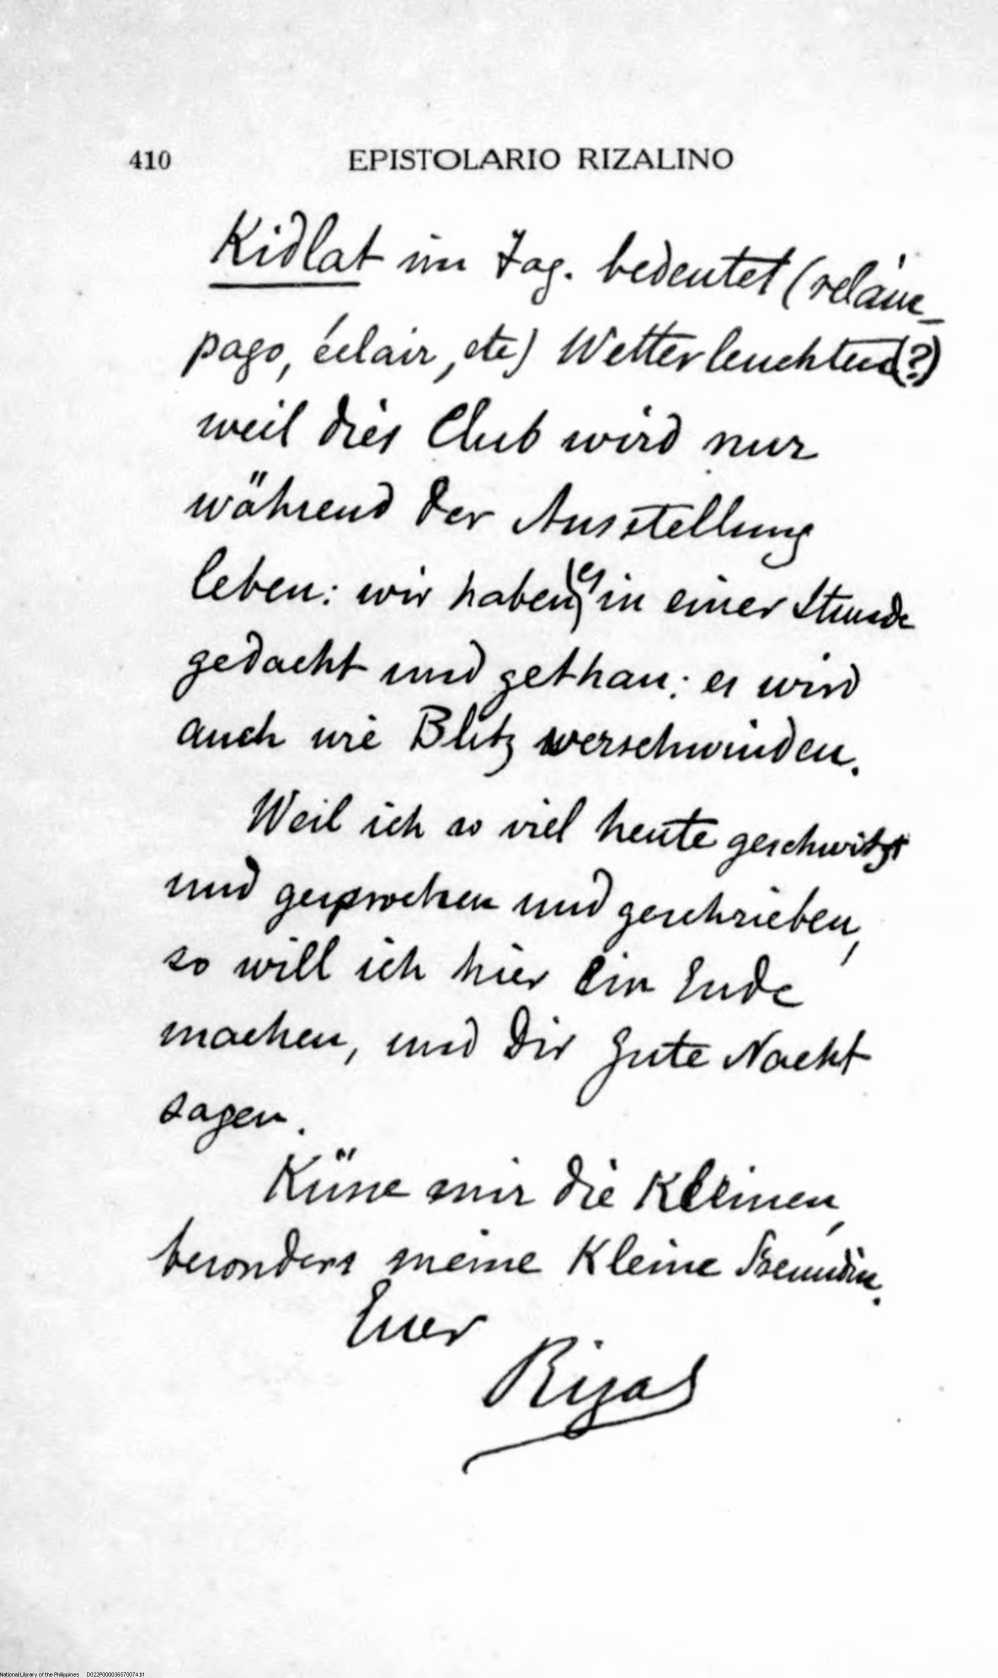 410 EPISTOLARIO RIZALINO
Kidlat im Tag. bedeutet (relám-
pago, éclair, etc) Wetterleuchten(?)
weil dies Club wird nur
während der Ausstellung
leben: wir haben es in einer Stunde
gedacht und gethan: es wird
auch wie Blitz verschwinden.
Weil ich so viel heute geschwitzt
und gesprochen und geschrieben,
so will ich hier ein Ende
machen, und Dir gute Nacht
sagen.
Küne mir die Kleinen,
besonders meine Kleine Freundin.
Euer
Rizal
National Library of the Philippines